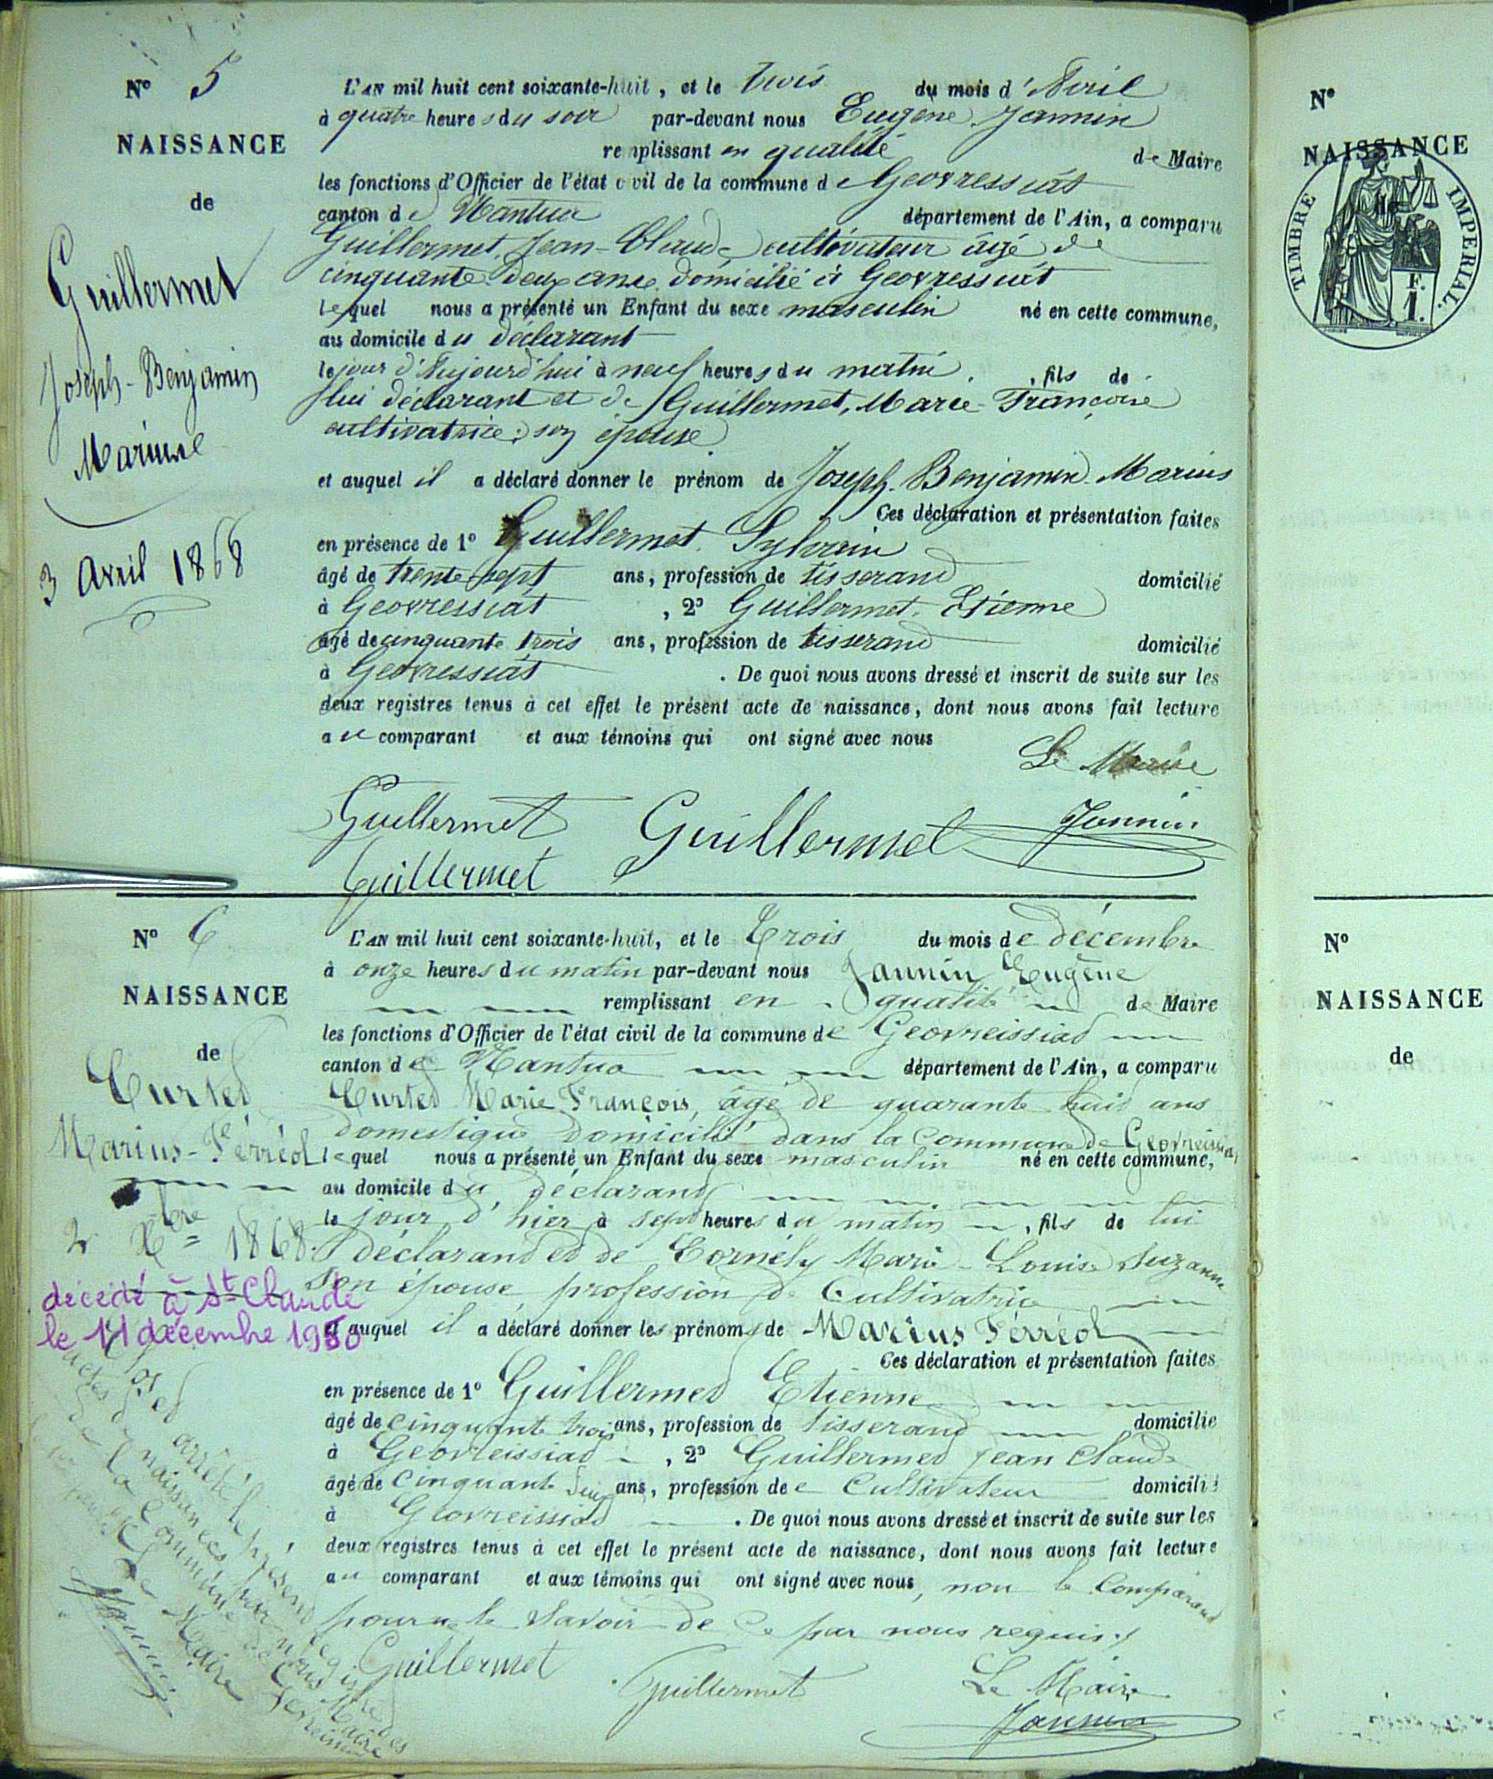 N° 5
NAISSANCE
de
Guillermet
Joseph-Benjamin
Marius
3 Avril 1868
L'AN mil huit cent soixante-huit, et le trois du mois d'Avril
à quatre heures du soir par-devant nous Eugène Jannin
remplissant en qualité de Maire
les fonctions d'Officier de l'état civil de la commune de Geovressiat
canton de Nantua département de l'Ain, a comparu
Guillermet, Jean-Claude, cultivateur âgé de
cinquante deux ans domicilié à Geovressiat
lequel nous a présenté un Enfant du sexe masculin né en cette commune,
au domicile du déclarant
le jour d'Aujourd'hui à neuf heures du matin, fils de
lui déclarant et de Guillermet, Marie-Françoise
cultivatrice, son épouse
et auquel il a déclaré donner le prénom de Joseph-Benjamin Marius
Ces déclaration et présentation faites
en présence de 1° Guillermet Sylvain
âgé de trente-sept ans, profession de tisserand domicilié
à Geovressiat, 2° Guillermet Etienne
âgé de cinquante trois ans, profession de tisserand domicilié
à Geovressiat. De quoi nous avons dressé et inscrit de suite sur les
deux registres tenus à cet effet le présent acte de naissance, dont nous avons fait lecture
au comparant et aux témoins qui ont signé avec nous
Le Maire
Guillermet Guillermet Jannin
Guillermet
N° 6
NAISSANCE
de
Curtet
Marius-Férréol
2 Xbre 1868
décédé à St Claude
le 11 décembre 1950
Clos et arrêté le présent registre des
actes de naissances par nous Maire
de la commune de Geovreissiat
Le Maire
Jannin
L'AN mil huit cent soixante-huit, et le trois du mois de décembre
à onze heures du matin par-devant nous Jannin Eugène
remplissant en qualité de Maire
les fonctions d'Officier de l'état civil de la commune de Geovreissiat
canton de Nantua département de l'Ain, a comparu
Curtet Marie François, âgé de quarante huit ans
domestique domicilié dans la commune de Geovreissiat
lequel nous a présenté un Enfant du sexe masculin né en cette commune,
au domicile du déclarant
le jour d'hier à sept heures du matin, fils de lui
déclarant et de Cornély Marie-Louise Suzanne
son épouse, profession de Cultivatrice
et auquel il a déclaré donner les prénoms de Marius Férréol
Ces déclaration et présentation faites
en présence de 1° Guillermet Etienne
âgé de cinquante trois ans, profession de tisserand domicilié
à Geovreissiat, 2° Guillermet Jean Claude
âgé de cinquante deux ans, profession de Cultivateur domicilié
à Geovreissiat. De quoi nous avons dressé et inscrit de suite sur les
deux registres tenus à cet effet le présent acte de naissance, dont nous avons fait lecture
au comparant et aux témoins qui ont signé avec nous, non le Comparant
pour ne le savoir de ce par nous requis.
Guillermet Guillermet Le Maire
Jannin
N°
NAISSANCE
TIMBRE IMPERIAL.
F.
1.
N°
NAISSANCE
de